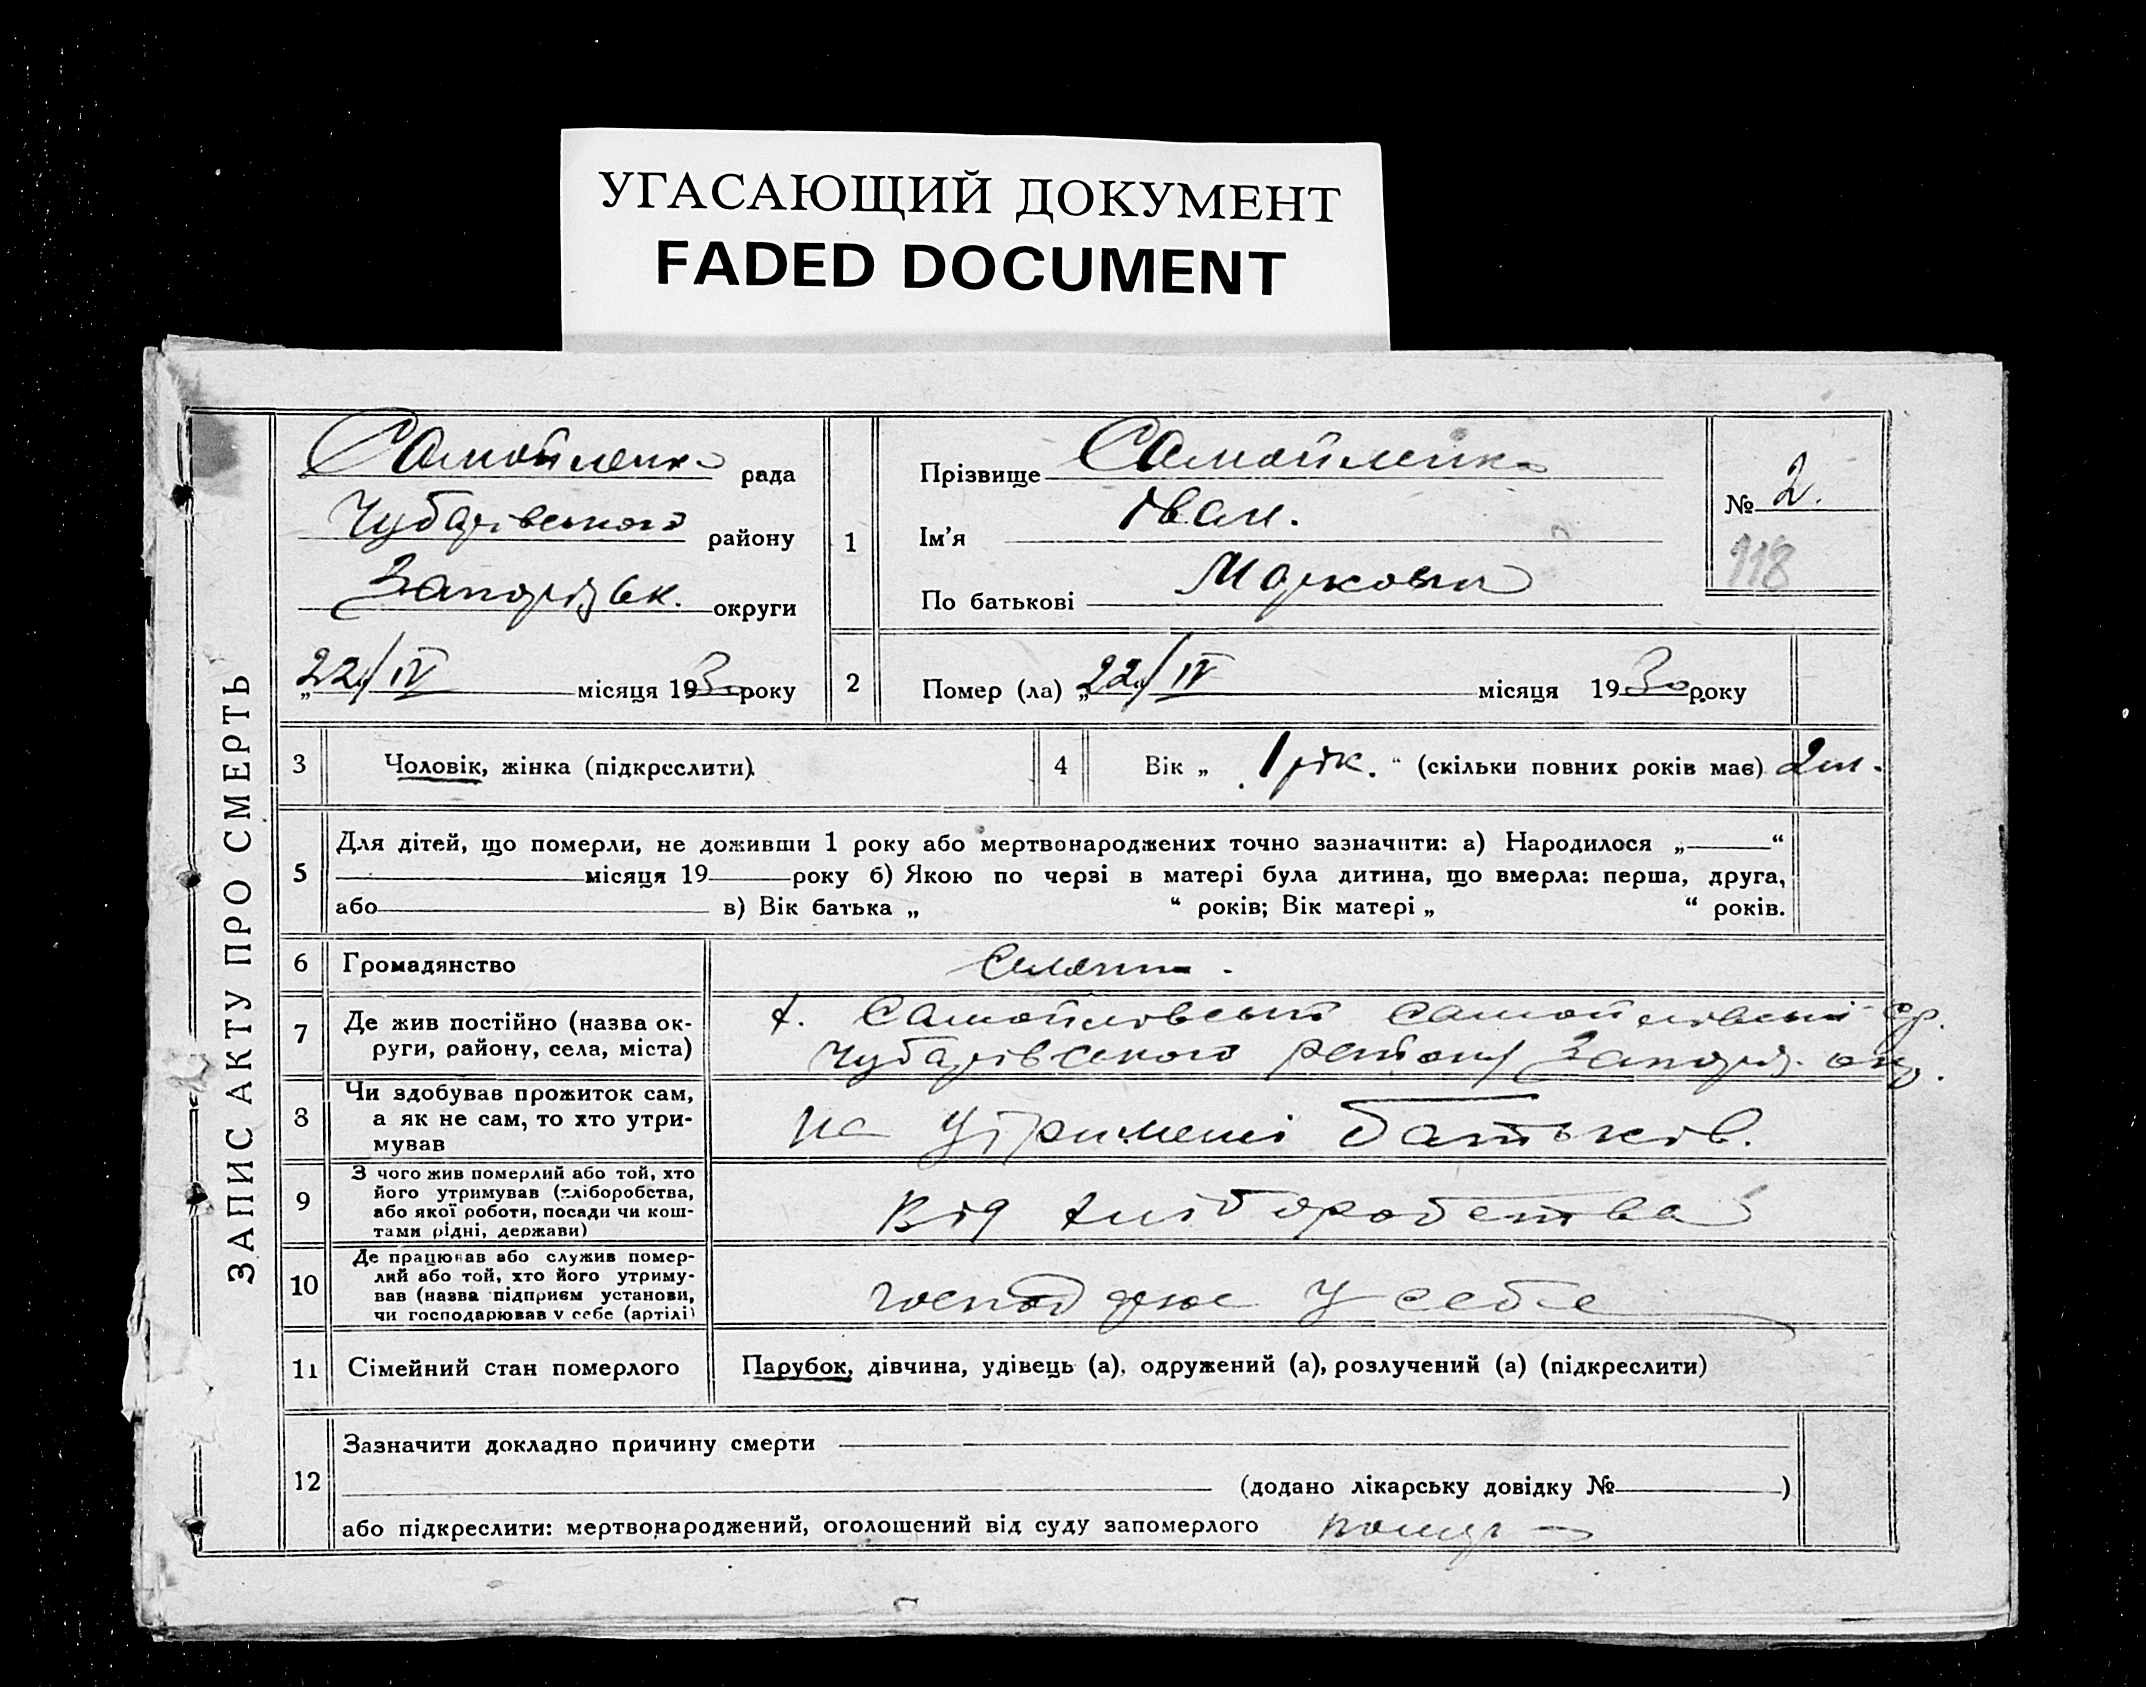 УГАСАЮЩИЙ ДОКУМЕНТ
FADED DOCUMENT
ЗАПИС АКТУ ПРО СМЕРТЬ
рада
Чубарівського району
Запорізьк. округи
„22/IV місяця 1930 року
1
Прізвище Самойленко
Ім'я Іван.
По батькові Маркович
№ 2.
118
2
Помер (ла) „22/IV місяця 1930 року
3
Чоловік, жінка (підкреслити).
4
Вік „ 1 рік. “ (скільки повних років має) 2 м.
5
Для дітей, що померли, не доживши 1 року або мертвонароджених точно зазначити: а) Народилося „ “
місяця 19 року б) Якою по черзі в матері була дитина, що вмерла: перша, друга,
або в) Вік батька „ “ років; Вік матері „ “ років.
6
Громадянство
7
Де жив постійно (назва ок-
руги, району, села, міста)
х. Самойлівський Самойлівської с/р.
Чубарівського району Запоріз. окр.
8
Чи здобував прожиток сам,
а як не сам, то хто утри-
мував
На утриманні батьків.
9
З чого жив померлий або той, хто
його утримував (хліборобства,
або якої роботи, посади чи кош-
тами рідні, держави)
від хліборобства
10
Де працював або служив помер-
лий або той, хто його утриму-
вав (назва підприєм установи,
чи господарював у себе (артілі)
господарює у себе
11
Сімейний стан померлого
Парубок, дівчина, удівець (а), одружений (а), розлучений (а) (підкреслити)
12
Зазначити докладно причину смерти
(додано лікарську довідку № )
або підкреслити: мертвонароджений, оголошений від суду запомерлого